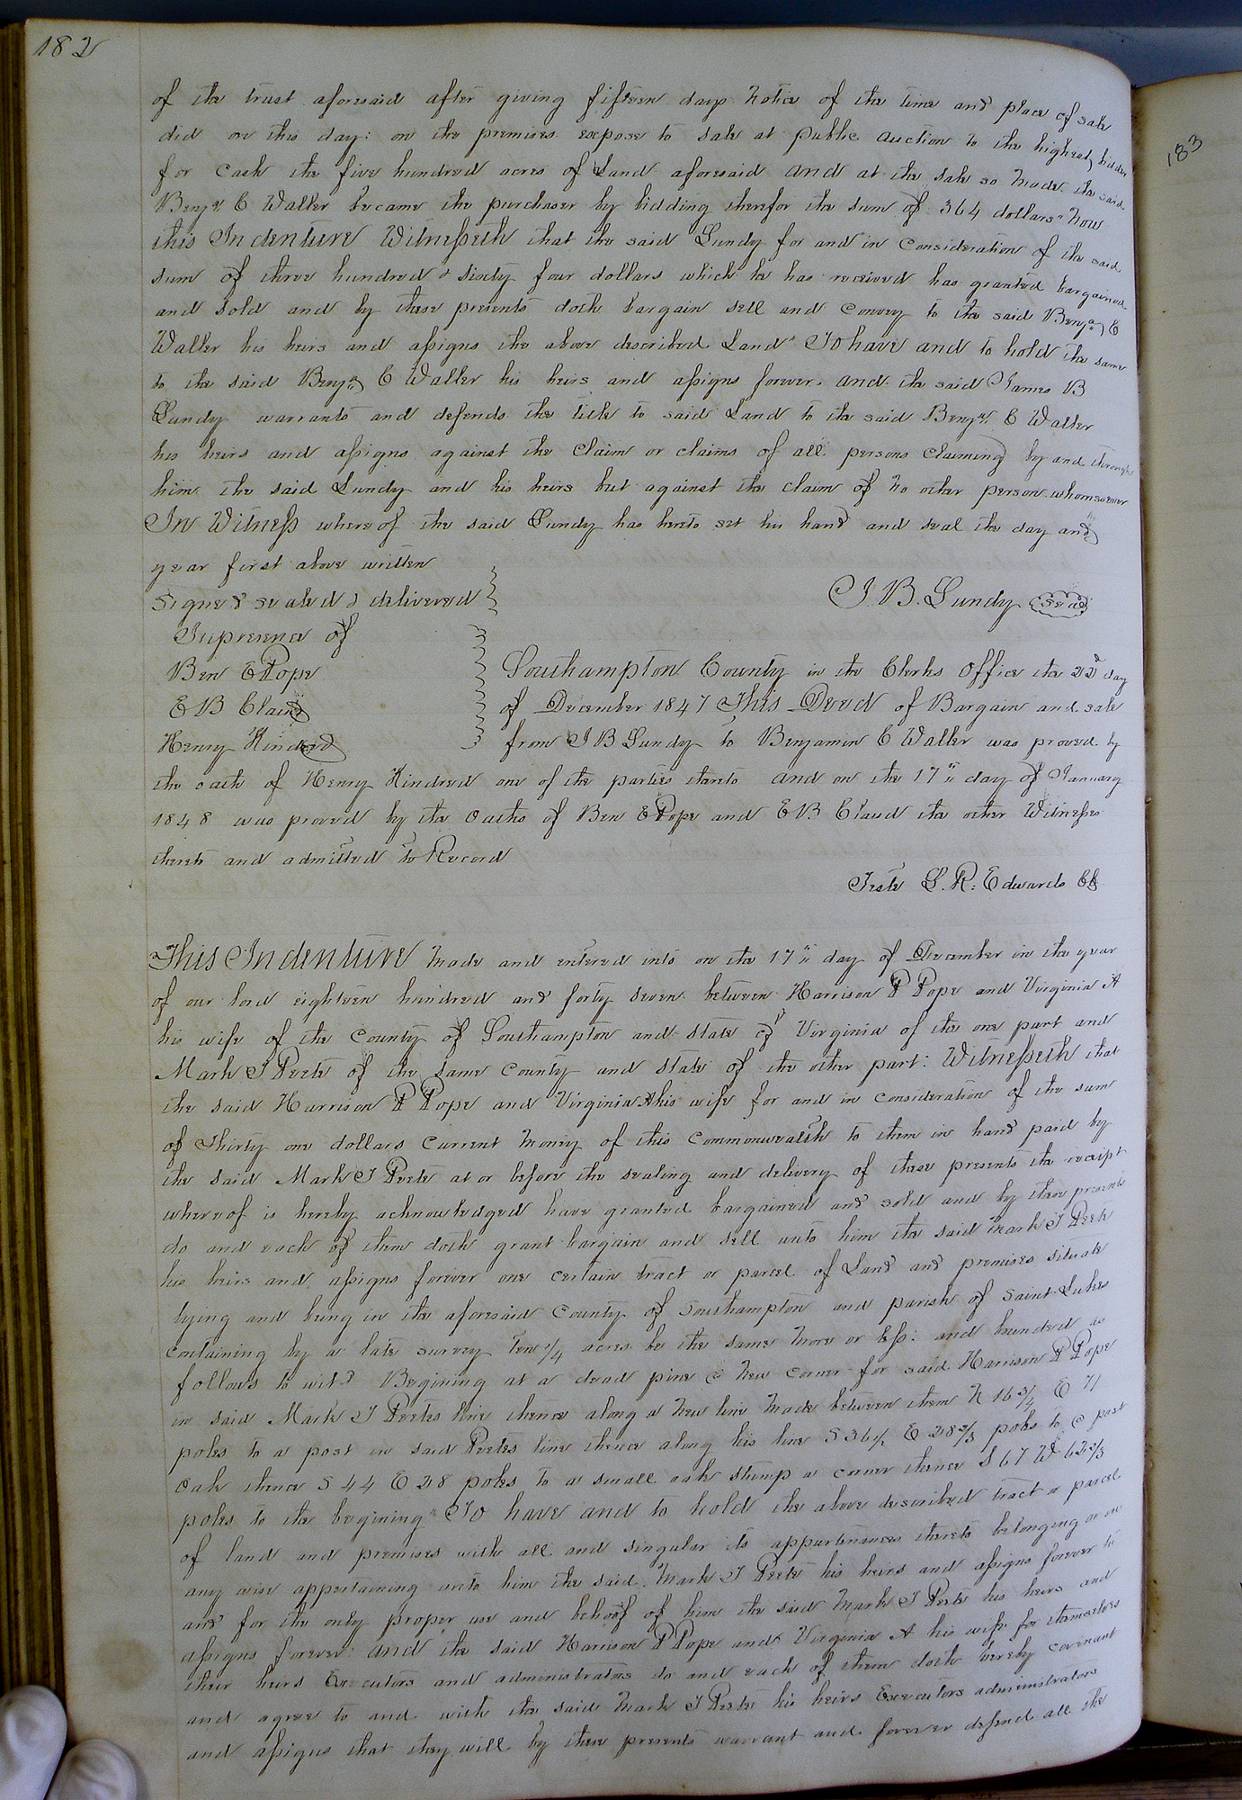 182
of the trust aforesaid after giving fifteen days notice of the time and place of sale
did on this day: on the premises expose to sale at public auction to the highest bidder
for cash the five hundred acres of Land aforesaid and at the sale so made the said
Benjn. E Waller became the purchaser by bidding therefor the sum of 364 dollars" Now
this Indenture Witnesseth that the said Lundy for and in consideration of the said
sum of three hundred & sixty four dollars which he has received has granted bargained
and sold and by these presents doth bargain sell and convey to the said Benjn. E
Waller his heirs and assigns the above described Land" To have and to hold the same
to the said Benjn. E Waller his heirs and assigns forever. and the said James B
Lundy warrants and defends the title to said Land to the said Benjn. E Waller
his heirs and assigns against the claim or claims of all persons claiming by and through
him the said Lundy and his heirs but against the claim of no other person whomsoever
In Witness whereof the said Lundy has hereto set his hand and seal the day and
year first above written
Signed sealed & delivered
J B. Lundy seal
In presence of
Ben E Pope
E B Claud
Henry Kindred
Southampton County in the Clerks Office the 22d day
of December 1847 This Deed of Bargain and sale
from J B Lundy to Benjamin E Waller was proved by
the oath of Henry Kindred one of the parties thereto and on the 17th day of January
1848 was proved by the oaths of Ben E Pope and E B Claud the other Witnesses
thereto and admitted to Record
Teste L. R. Edwards Clk
This Indenture made and entered into on the 17th day of December in the year
of our lord eighteen hundred and forty seven between Harrison P Pope and Virginia A
his wife of the County of Southampton and state of Virginia of the one part and
Mark J Peete of the same county and state of the other part: Witnesseth that
the said Harrison P Pope and Virginia A his wife for and in consideration of the sum
of Thirty one dollars current money of this commonwealth to them in hand paid by
the said Mark J Peete at or before the sealing and delivery of these presents the receipt
whereof is hereby acknowledged have granted bargained and sold and by these presents
do and each of them doth grant bargain and sell unto him the said Mark J Peete
his heirs and assigns forever one certain tract or parcel of Land and premises situate
lying and being in the aforesaid County of Southampton and parish of Saint Lukes
containing by a late survey ten 1/4 acres be the same more or less: and bounded as
follows to wit: Begining at a dead pine a new corner for said Harrison P Pope
in said Mark J Peetes line thence along a new line made between them N 16 3/4 E 71
poles to a post in said Peetes line thence along his line S 36 1/2 E 28 2/3 poles to a post
oak thence S 44 E 28 poles to a small oak stump a corner thence S 67 W 62 2/3
poles to the begining" To have and to hold the above described tract or parcel
of land and premises with all and singular its appurtenances thereto belonging or in
any wise appertaining unto him the said Mark J Peete his heirs and assigns forever to
and for the only proper use and behoof of him the said Mark J Peete his heirs and
assigns forever and the said Harrison P Pope and Virginia A his wife for themselves
their heirs Executors and administrators do and each of them doth hereby covenant
and agree to and with the said Mark J Peete his heirs Executors administrators
and assigns that they will by these presents warrant and forever defend all the
183